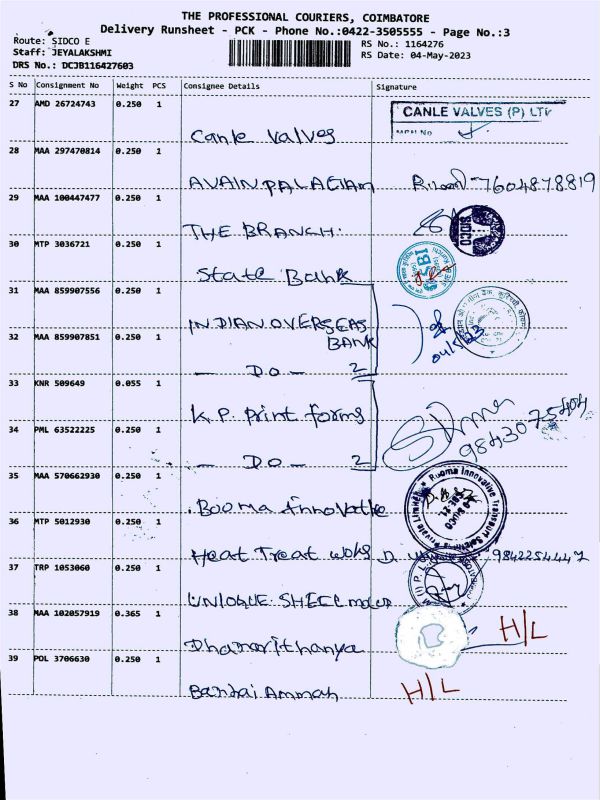 THE PROFESSIONAL COURIERS, COIMBATORE
Delivery Runsheet - PCK - Phone No.:0422-3505555 - Page No.:3
Route: SIDCO E
RS No.: 1164276
Staff: JEYALAKSHMI
RS Date: 04-May-2023
DRS No.: DCJB116427603
S No Consignment No Weight PCS Consignee Details Signature
27 AMD 26724743 0.250 1
CANLE VALVES (P) LTD
Canle Valves
28 MAA 297470814 0.250 1
AVAINPALAGIAM 7604878819
29 MAA 100447477 0.250 1
THE BRANCH.
SIDCO
30 MTP 3036721 0.250 1
State Bank
SBI
31 MAA 859907556 0.250 1
INDIAN OVERSEAS
BANK
04/5/23
32 MAA 859907851 0.250 1
— DO — 2
33 KNR 509649 0.055 1
K.P. Print forms
34 PML 63522225 0.250 1
9843075404
— DO — 2
35 MAA 570662930 0.250 1
Booma Innovative
Booma Innovative Transport Solutions Private Limited
36 MTP 5012930 0.250 1
Heat Treat woks 9842254447
37 TRP 1053060 0.250 1
UNIQUE SHELL mould
38 MAA 102057919 0.365 1
H/L
Dhanarithanya
39 POL 3706630 0.250 1
Bantai Ammah H/L